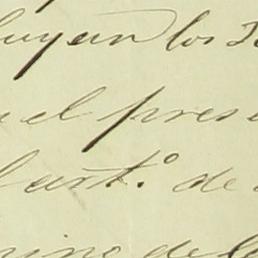 luyan los
el pres
art.º de
mino de la